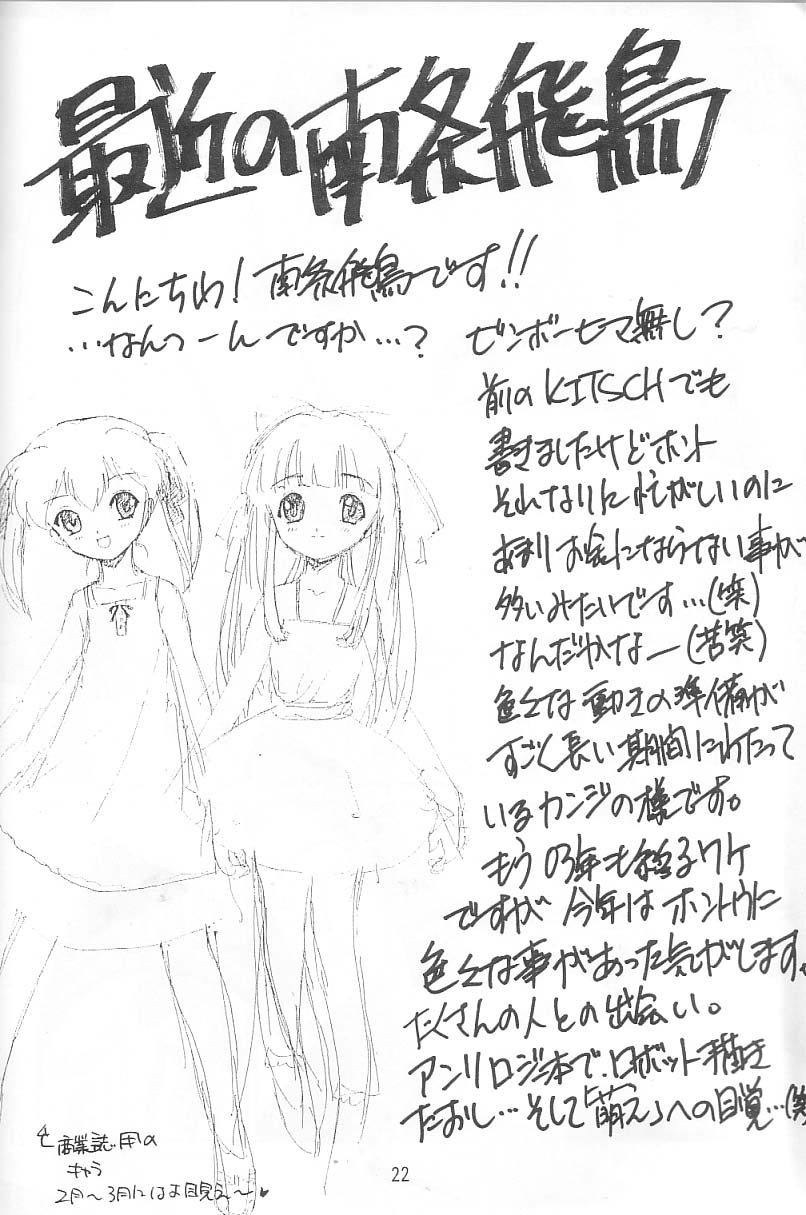 最近の南条飛鳥
こんにちわ！南条飛鳥です!!
…なんつーんですか…？ ビンボーヒマ無し？
前のKITSCHでも
書きましたけどホント
それなりに忙がしいのに
あまりお金にならない事が
多いみたいです…(笑)
なんだかなー(苦笑)
色々な動きの準備が
すごく長い期間にわたって
いるカンジの様です。
もう03年も終るワケ
ですが今年はホントウに
色々な事があった気がします。
たくさんの人との出会い。
アンソロジー本で、ロボット描き
たおし…そして「萌え」への目覚…(笑
商業誌用の
キャラ
2月〜3月にはお目見え〜
22